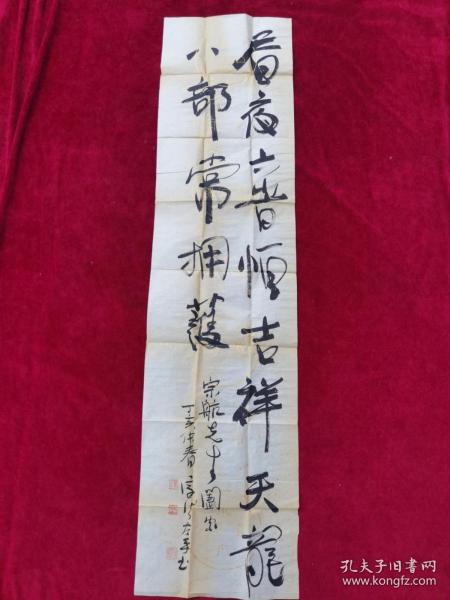 昼夜六旹恒吉祥天龍
八部常拥護
宗航先生闔家
丁亥仲春
左手书
孔夫子旧书网
www.kongfz.com